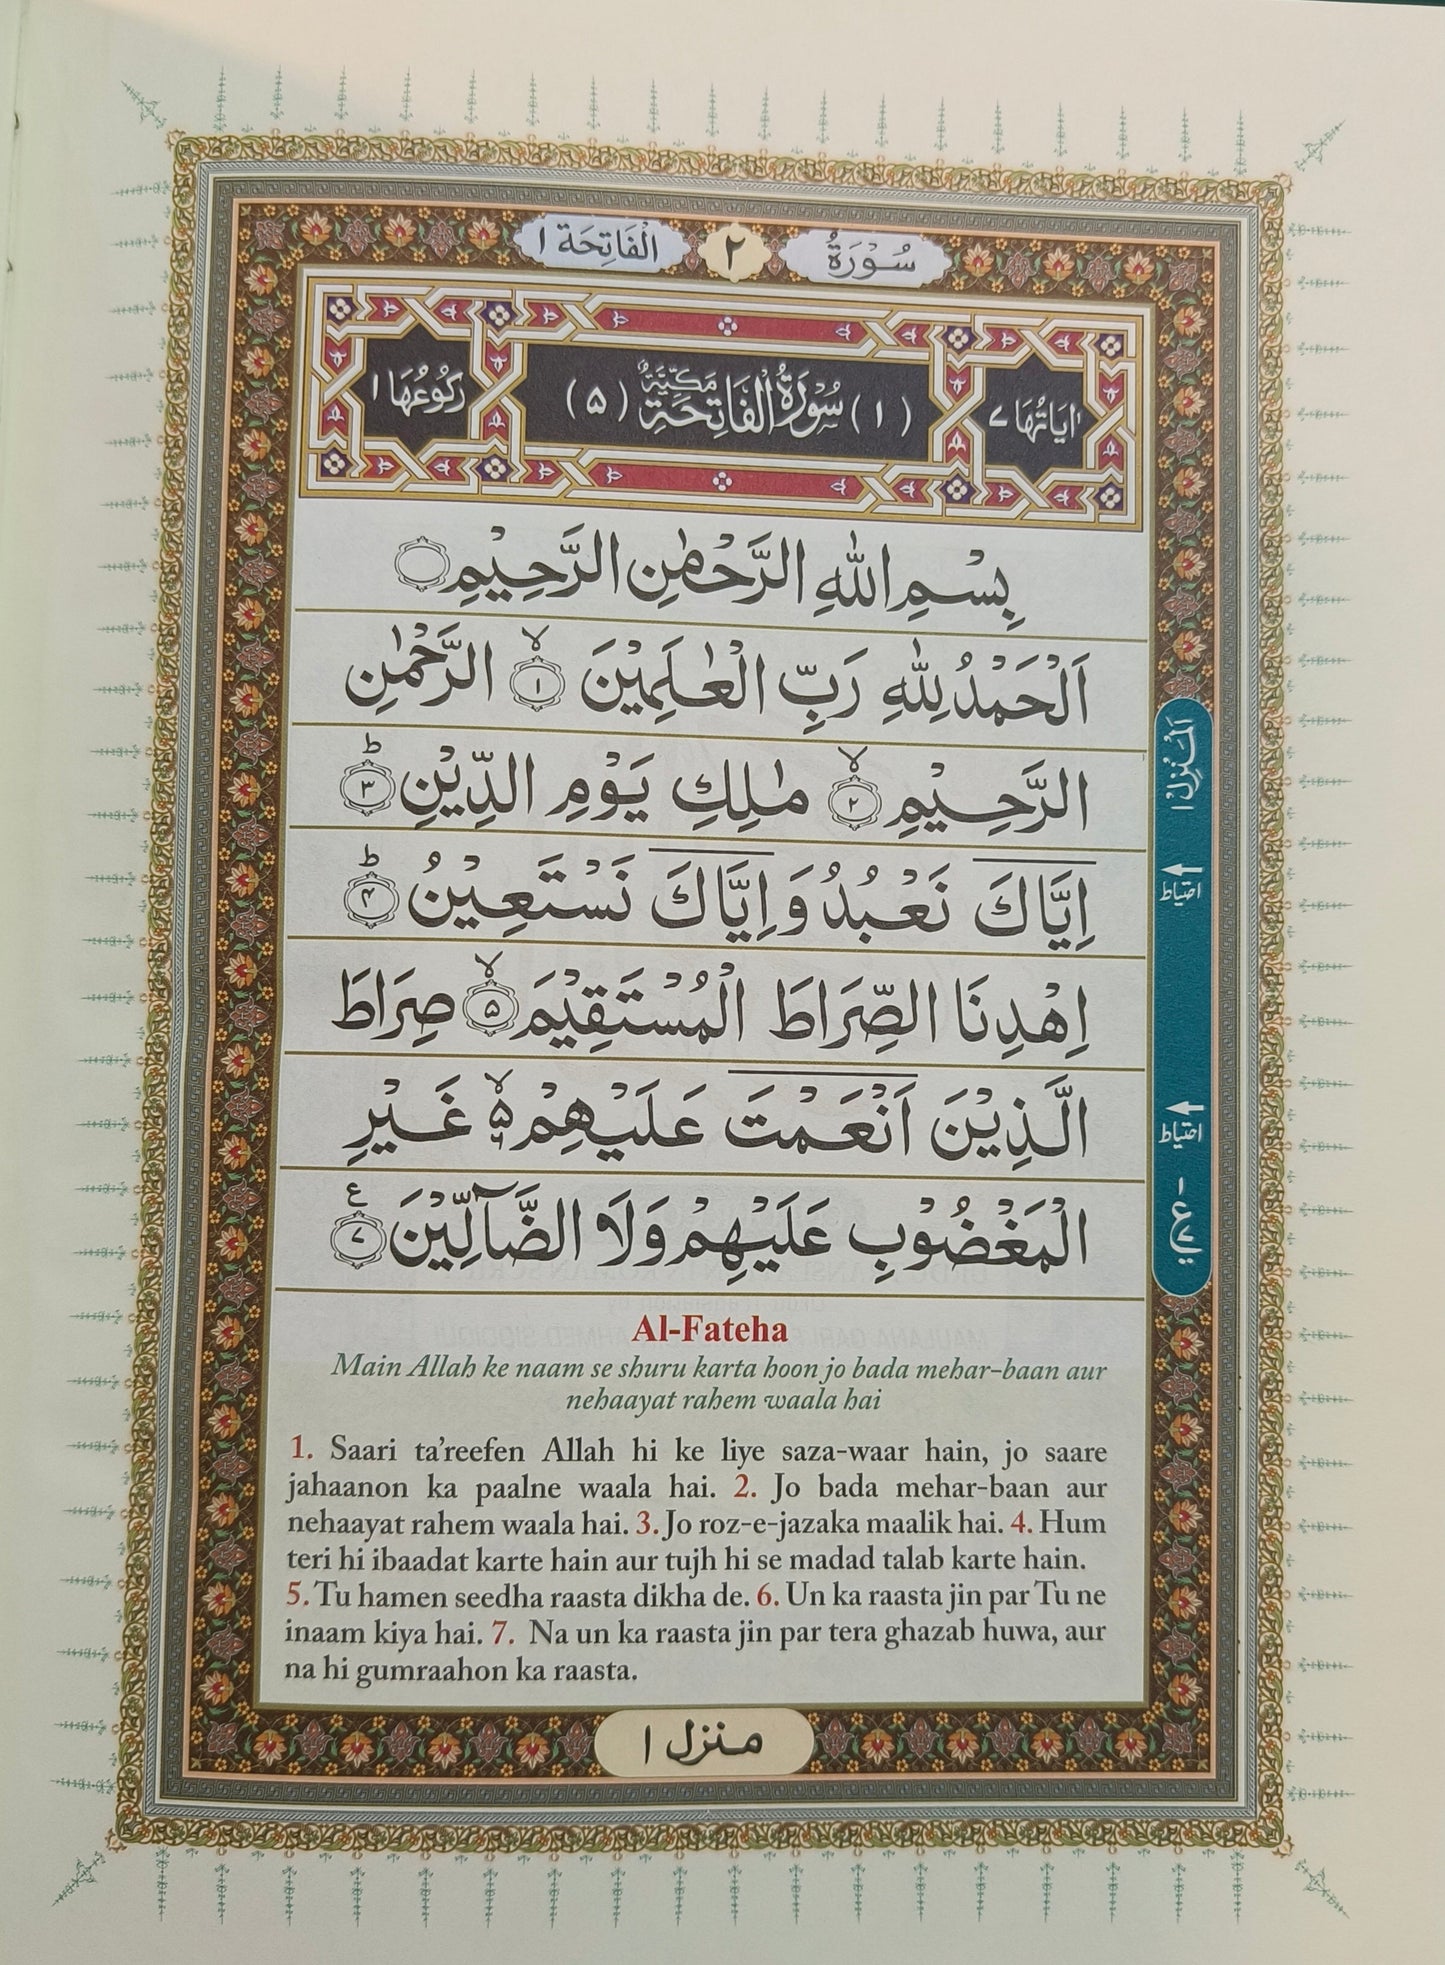 سُوْرَةُ ٢ الْفَاتِحَة ١
اٰيَاتُهَا ٧ (١) سُوْرَةُ الْفَاتِحَةِ مَكِّيَّةٌ (٥) رُكُوْعُهَا ١
بِسْمِ اللّٰهِ الرَّحْمٰنِ الرَّحِيْمِ
اَلْحَمْدُ لِلّٰهِ رَبِّ الْعٰلَمِيْنَ ۙ﴿١﴾ الرَّحْمٰنِ
الرَّحِيْمِ ۙ﴿٢﴾ مٰلِكِ يَوْمِ الدِّيْنِ ؕ﴿٣﴾
اِيَّاكَ نَعْبُدُ وَ اِيَّاكَ نَسْتَعِيْنُ ؕ﴿٤﴾
اِهْدِنَا الصِّرَاطَ الْمُسْتَقِيْمَ ۙ﴿٥﴾ صِرَاطَ
الَّذِيْنَ اَنْعَمْتَ عَلَيْهِمْ ۙ۬ غَيْرِ
الْمَغْضُوْبِ عَلَيْهِمْ وَلَا الضَّآلِّيْنَ ﴿٧﴾ ع
اَلْمَنْزِل ١
احتیاط
احتیاط
Al-Fateha
Main Allah ke naam se shuru karta hoon jo bada mehar-baan aur
nehaayat rahem waala hai
1. Saari ta'reefen Allah hi ke liye saza-waar hain, jo saare
jahaanon ka paalne waala hai. 2. Jo bada mehar-baan aur
nehaayat rahem waala hai. 3. Jo roz-e-jazaka maalik hai. 4. Hum
teri hi ibaadat karte hain aur tujh hi se madad talab karte hain.
5. Tu hamen seedha raasta dikha de. 6. Un ka raasta jin par Tu ne
inaam kiya hai. 7. Na un ka raasta jin par tera ghazab huwa, aur
na hi gumraahon ka raasta.
منزل ١